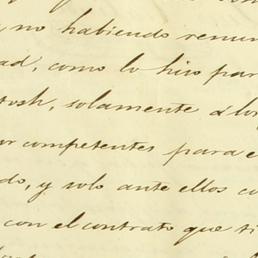 y no habiendo renun
ad, como lo hiso par
tosh, solamente á lo
or competentes para e
do, y solo ante ellos co
con el contrato que ti